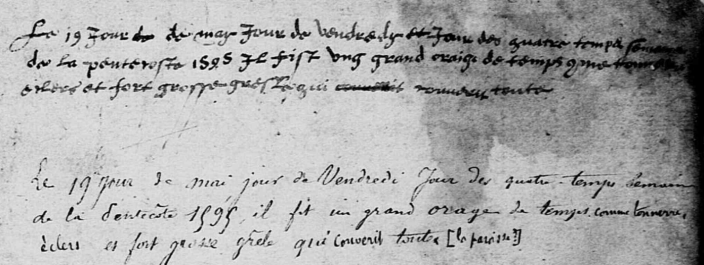 Le 19 Jour de may Jour de vendredy et Jour des quatre temps semaine
de la penteroste 1595 Il fist ung grand oraige de temps comme tonnerre
eclers et fort grosse gresle qui couvrit toute
Le 19 jour de mai jour de Vendredi Jour des quatre-temps Semaine
de la Pentecôte 1595, il fit un grand orage de temps comme tonnerre,
éclers et fort grosse grêle qui couvrit toute [la paroisse?]